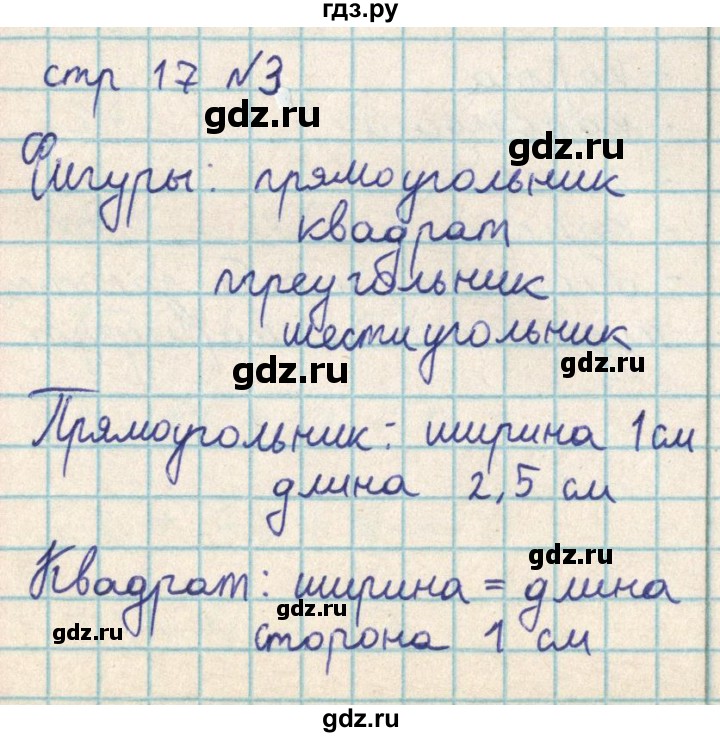 гдз.ру
стр 17 №3
gdz.ru
gdz.ru
Фигуры: прямоугольник
квадрат
треугольник
шестиугольник
gdz.ru
gdz.ru
Прямоугольник: ширина 1 см
длина 2,5 см
gdz.ru
Квадрат: ширина = длина
gdz.ru
gdz.ru
сторона 1 см
gdz.ru